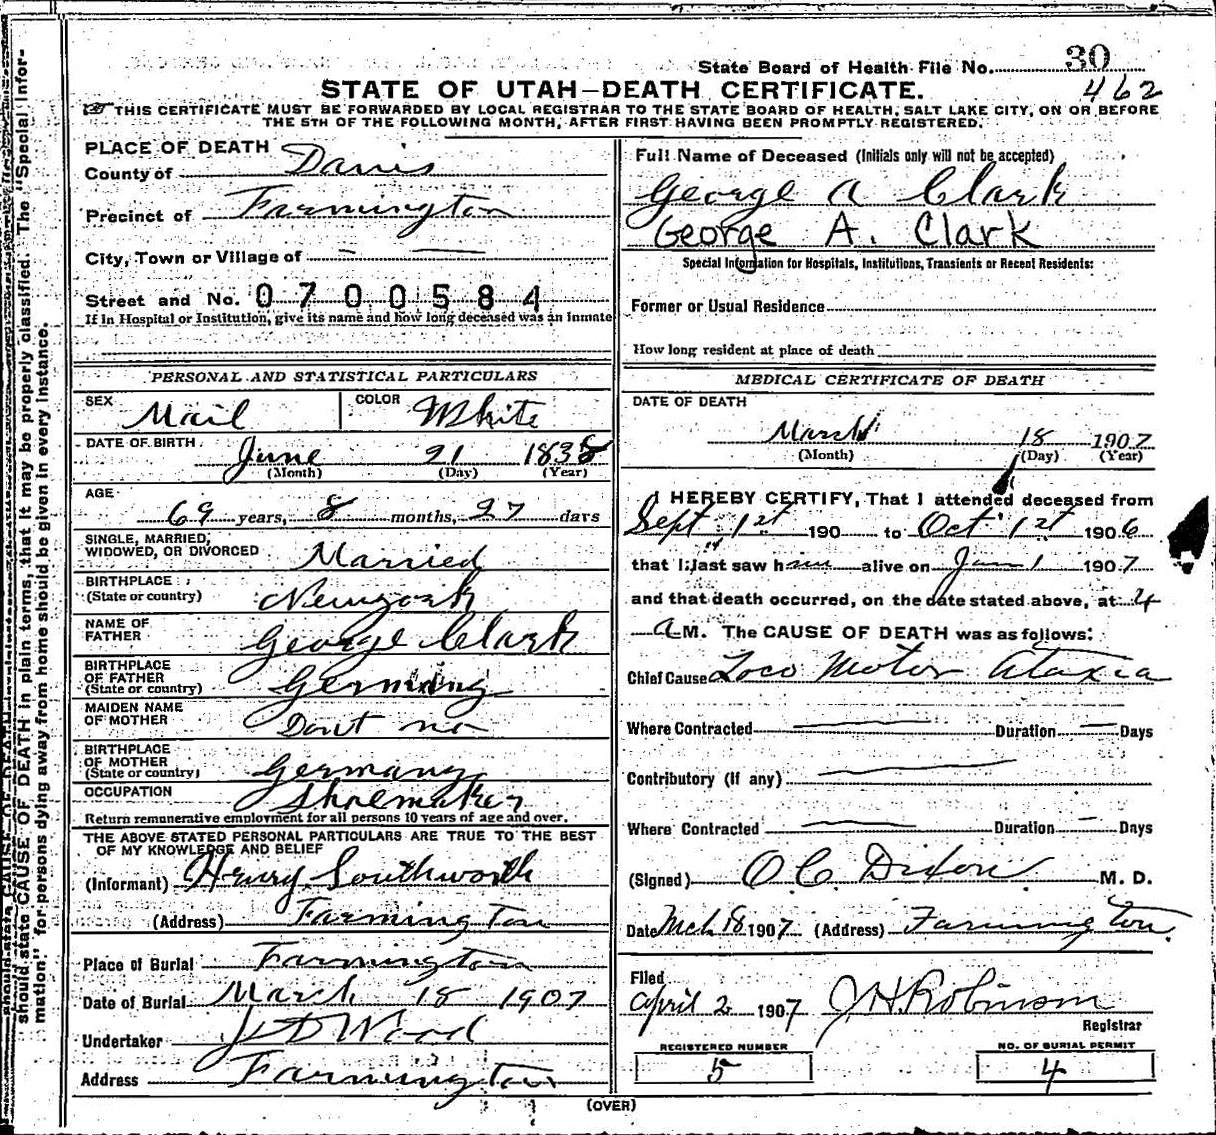 State Board of Health File No. 30
462
STATE OF UTAH—DEATH CERTIFICATE.
THIS CERTIFICATE MUST BE FORWARDED BY LOCAL REGISTRAR TO THE STATE BOARD OF HEALTH, SALT LAKE CITY, ON OR BEFORE
THE 5TH OF THE FOLLOWING MONTH, AFTER FIRST HAVING BEEN PROMPTLY REGISTERED.
PLACE OF DEATH
County of Davis
Precinct of Farmington
City, Town or Village of — —
Street and No. 0700584
If in Hospital or Institution, give its name and how long deceased was an inmate
PERSONAL AND STATISTICAL PARTICULARS
SEX Mail COLOR White
DATE OF BIRTH June 21 1838
(Month) (Day) (Year)
AGE 69 years, 8 months, 27 days
SINGLE, MARRIED,
WIDOWED, OR DIVORCED Married
BIRTHPLACE
(State or country) Newyork
NAME OF
FATHER George Clark
BIRTHPLACE
OF FATHER
(State or country) Germany
MAIDEN NAME
OF MOTHER Dont no
BIRTHPLACE
OF MOTHER
(State or country) Germany
OCCUPATION Shoemaker
Return remunerative employment for all persons 10 years of age and over.
THE ABOVE STATED PERSONAL PARTICULARS ARE TRUE TO THE BEST
OF MY KNOWLEDGE AND BELIEF
(Informant) Henry Southworth
(Address) Farmington
Place of Burial Farmington
Date of Burial March 18 1907
Undertaker J D Wood
Address Farmington
Full Name of Deceased (Initials only will not be accepted)
George A Clark
George A. Clark
Special Information for Hospitals, Institutions, Transients or Recent Residents:
Former or Usual Residence
How long resident at place of death
MEDICAL CERTIFICATE OF DEATH
DATE OF DEATH
March 18 1907
(Month) (Day) (Year)
I HEREBY CERTIFY, That I attended deceased from
Sept 1st 190 to Oct 1st 1906
that I last saw him alive on Jan 1 1907
and that death occurred, on the date stated above, at 4
A M. The CAUSE OF DEATH was as follows:
Chief Cause Loco Motor Ataxia
Where Contracted — Duration — Days
Contributory (if any) —
Where Contracted — Duration — Days
(Signed) O. C. Dixon M. D.
Date Mch 18 1907 (Address) Farmington.
Filed
April 2 1907 J. H. Robinson
Registrar
REGISTERED NUMBER
5
NO. OF BURIAL PERMIT
4
(OVER)
should state CAUSE OF DEATH in plain terms, that it may be properly classified. The "Special Infor-
mation" for persons dying away from home should be given in every instance.